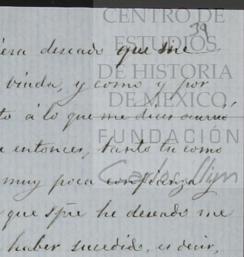 CENTRO DE
ESTUDIOS
DE HISTORIA
DE MÉXICO
FUNDACIÓN
Carlos Slim
39
era deseado que me
viuda, y como y por
to á lo que me dices
e entonces, tanto tu como
muy poca confianza
que spre he deseado me
haber sucedido, es decir,